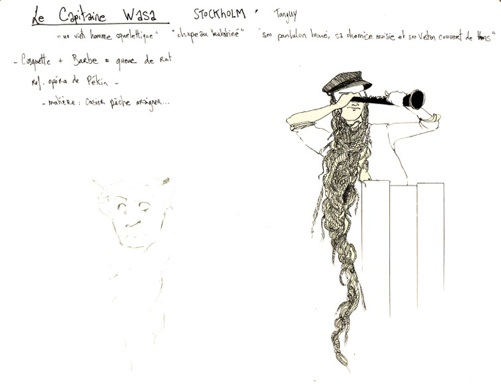 Le Capitaine Wasa STOCKHOLM Tanguy
- un vieil homme squelettique" "chapeau "son pantalon troué, sa chemise moisie et son veston couvert de
- Casquette + Barbe = queue de rat
Ref. opéra de Pékin -
- matière :